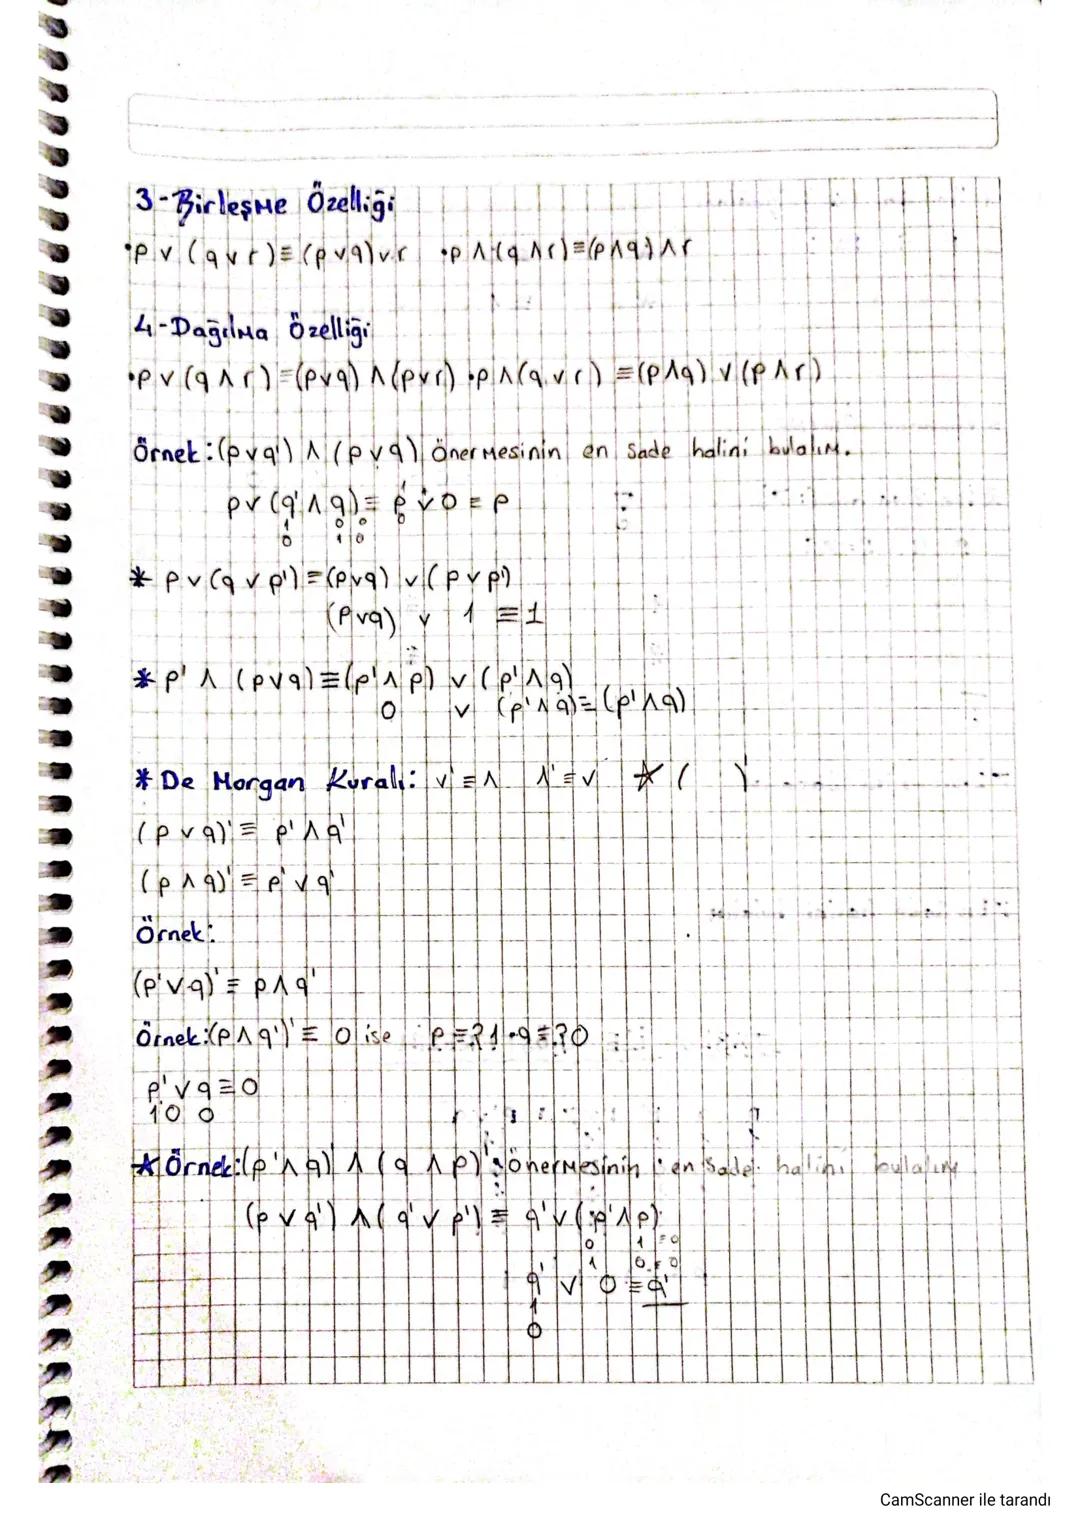 3-Birleşme Özelliği
•p ∨ (q ∨ r) ≡ (p ∨ q) ∨ r •p ∧ (q ∧ r) ≡ (p ∧ q) ∧ r
4-Dağılma Özelliği
•p ∨ (q ∧ r) ≡ (p ∨ q) ∧ (p ∨ r) •p ∧ (q ∨ r) ≡ (p ∧ q) ∨ (p ∧ r)
Örnek: (p ∨ q') ∧ (p ∨ q) önermesinin en sade halini bulalım.
p ∨ (q' ∧ q) ≡ p ∨ 0 ≡ p
1 0 0 0
0 1 0
* p ∨ (q ∨ p') ≡ (p ∨ q) ∨ (p ∨ p')
(p ∨ q) ∨ 1 ≡ 1
* p' ∧ (p ∨ q) ≡ (p' ∧ p) ∨ (p' ∧ q)
0 ∨ (p' ∧ q) ≡ (p' ∧ q)
* De Morgan Kuralı: ∨' ≡ ∧ ∧' ≡ ∨ ☆ ( )'
(p ∨ q)' ≡ p' ∧ q'
(p ∧ q)' ≡ p' ∨ q'
Örnek:
(p' ∨ q)' ≡ p ∧ q'
Örnek: (p ∧ q')' ≡ 0 ise p ≡ ? 1 • q ≡ ? 0
p' ∨ q ≡ 0
1 0 0
☆ Örnek: (p' ∧ q)' ∧ (q ∧ p)' önermesinin en sade halini bulalım
(p ∨ q') ∧ (q' ∨ p') ≡ q' ∨ (p' ∧ p)
0 1 ≡ 0
1 0 ≡ 0
q' ∨ 0 ≡ q'
1
0
CamScanner ile tarandı